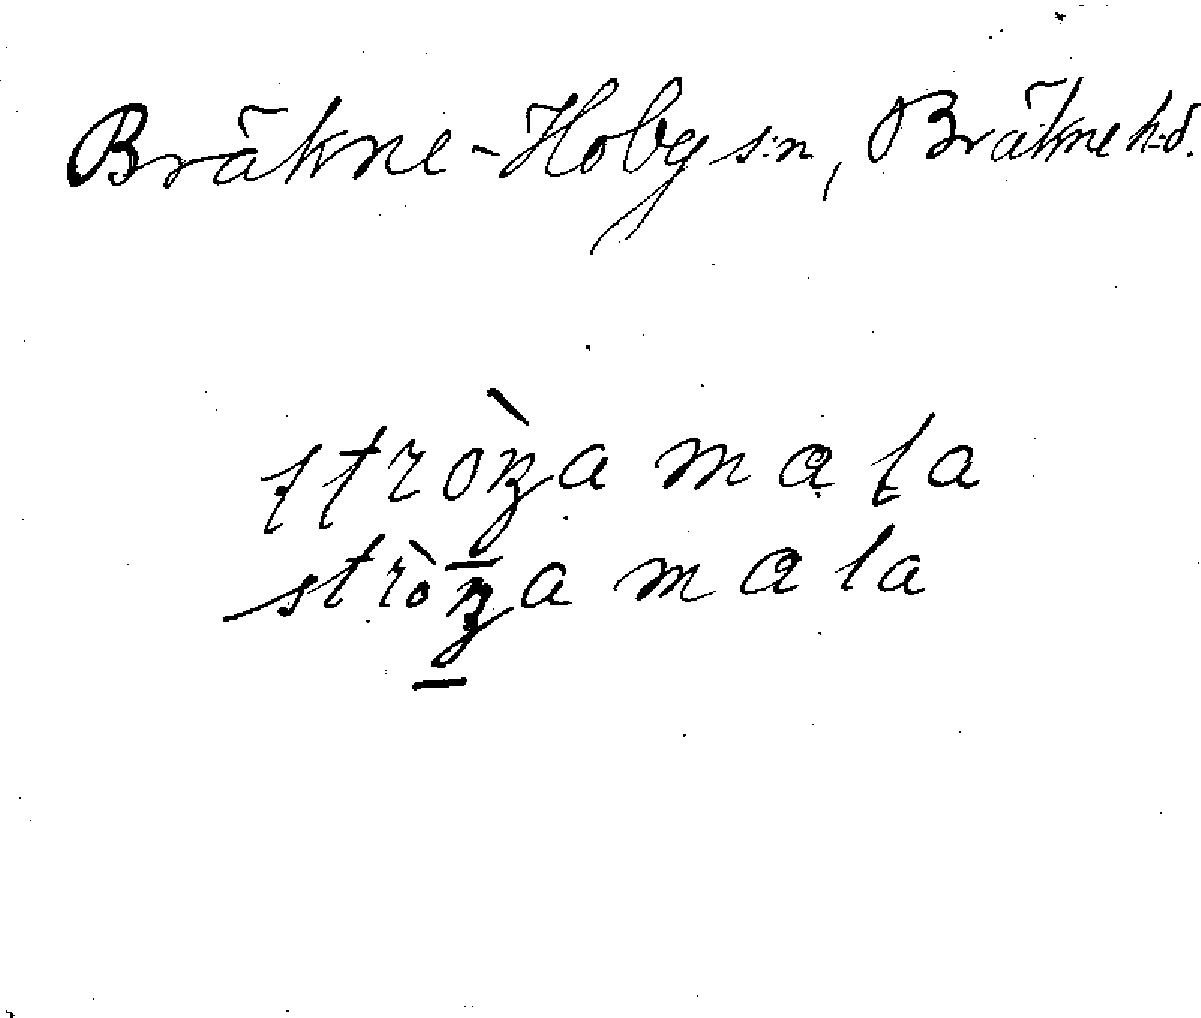 Bräkne-Hoby s:n, Bräkne h-d.
stròŋa mala
stròŋa mala